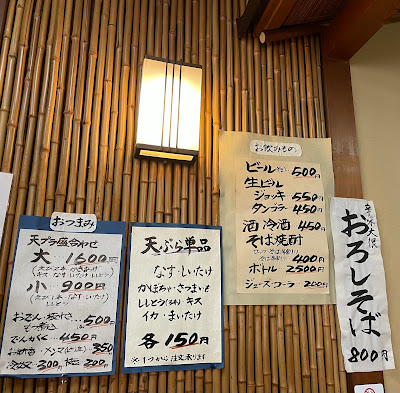 おつまみ
天プラ盛合わせ
大 1600円
キス なす しいたけ ししとう
小 900円
500円
でんがく…450円
350
300円 200円
天ぷら単品
なす・しいたけ
かぼちゃ・さつまいも
ししとう キス
イカ・まいたけ
各150円
※1つから注文承ります
お飲みもの
ビール 500円
生ビール
ジョッキ 550円
タンブラー 450円
酒 冷酒 450円
そば焼酎
400円
ボトル 2500円
ジュース・コーラ 200円
おろしそば
800円